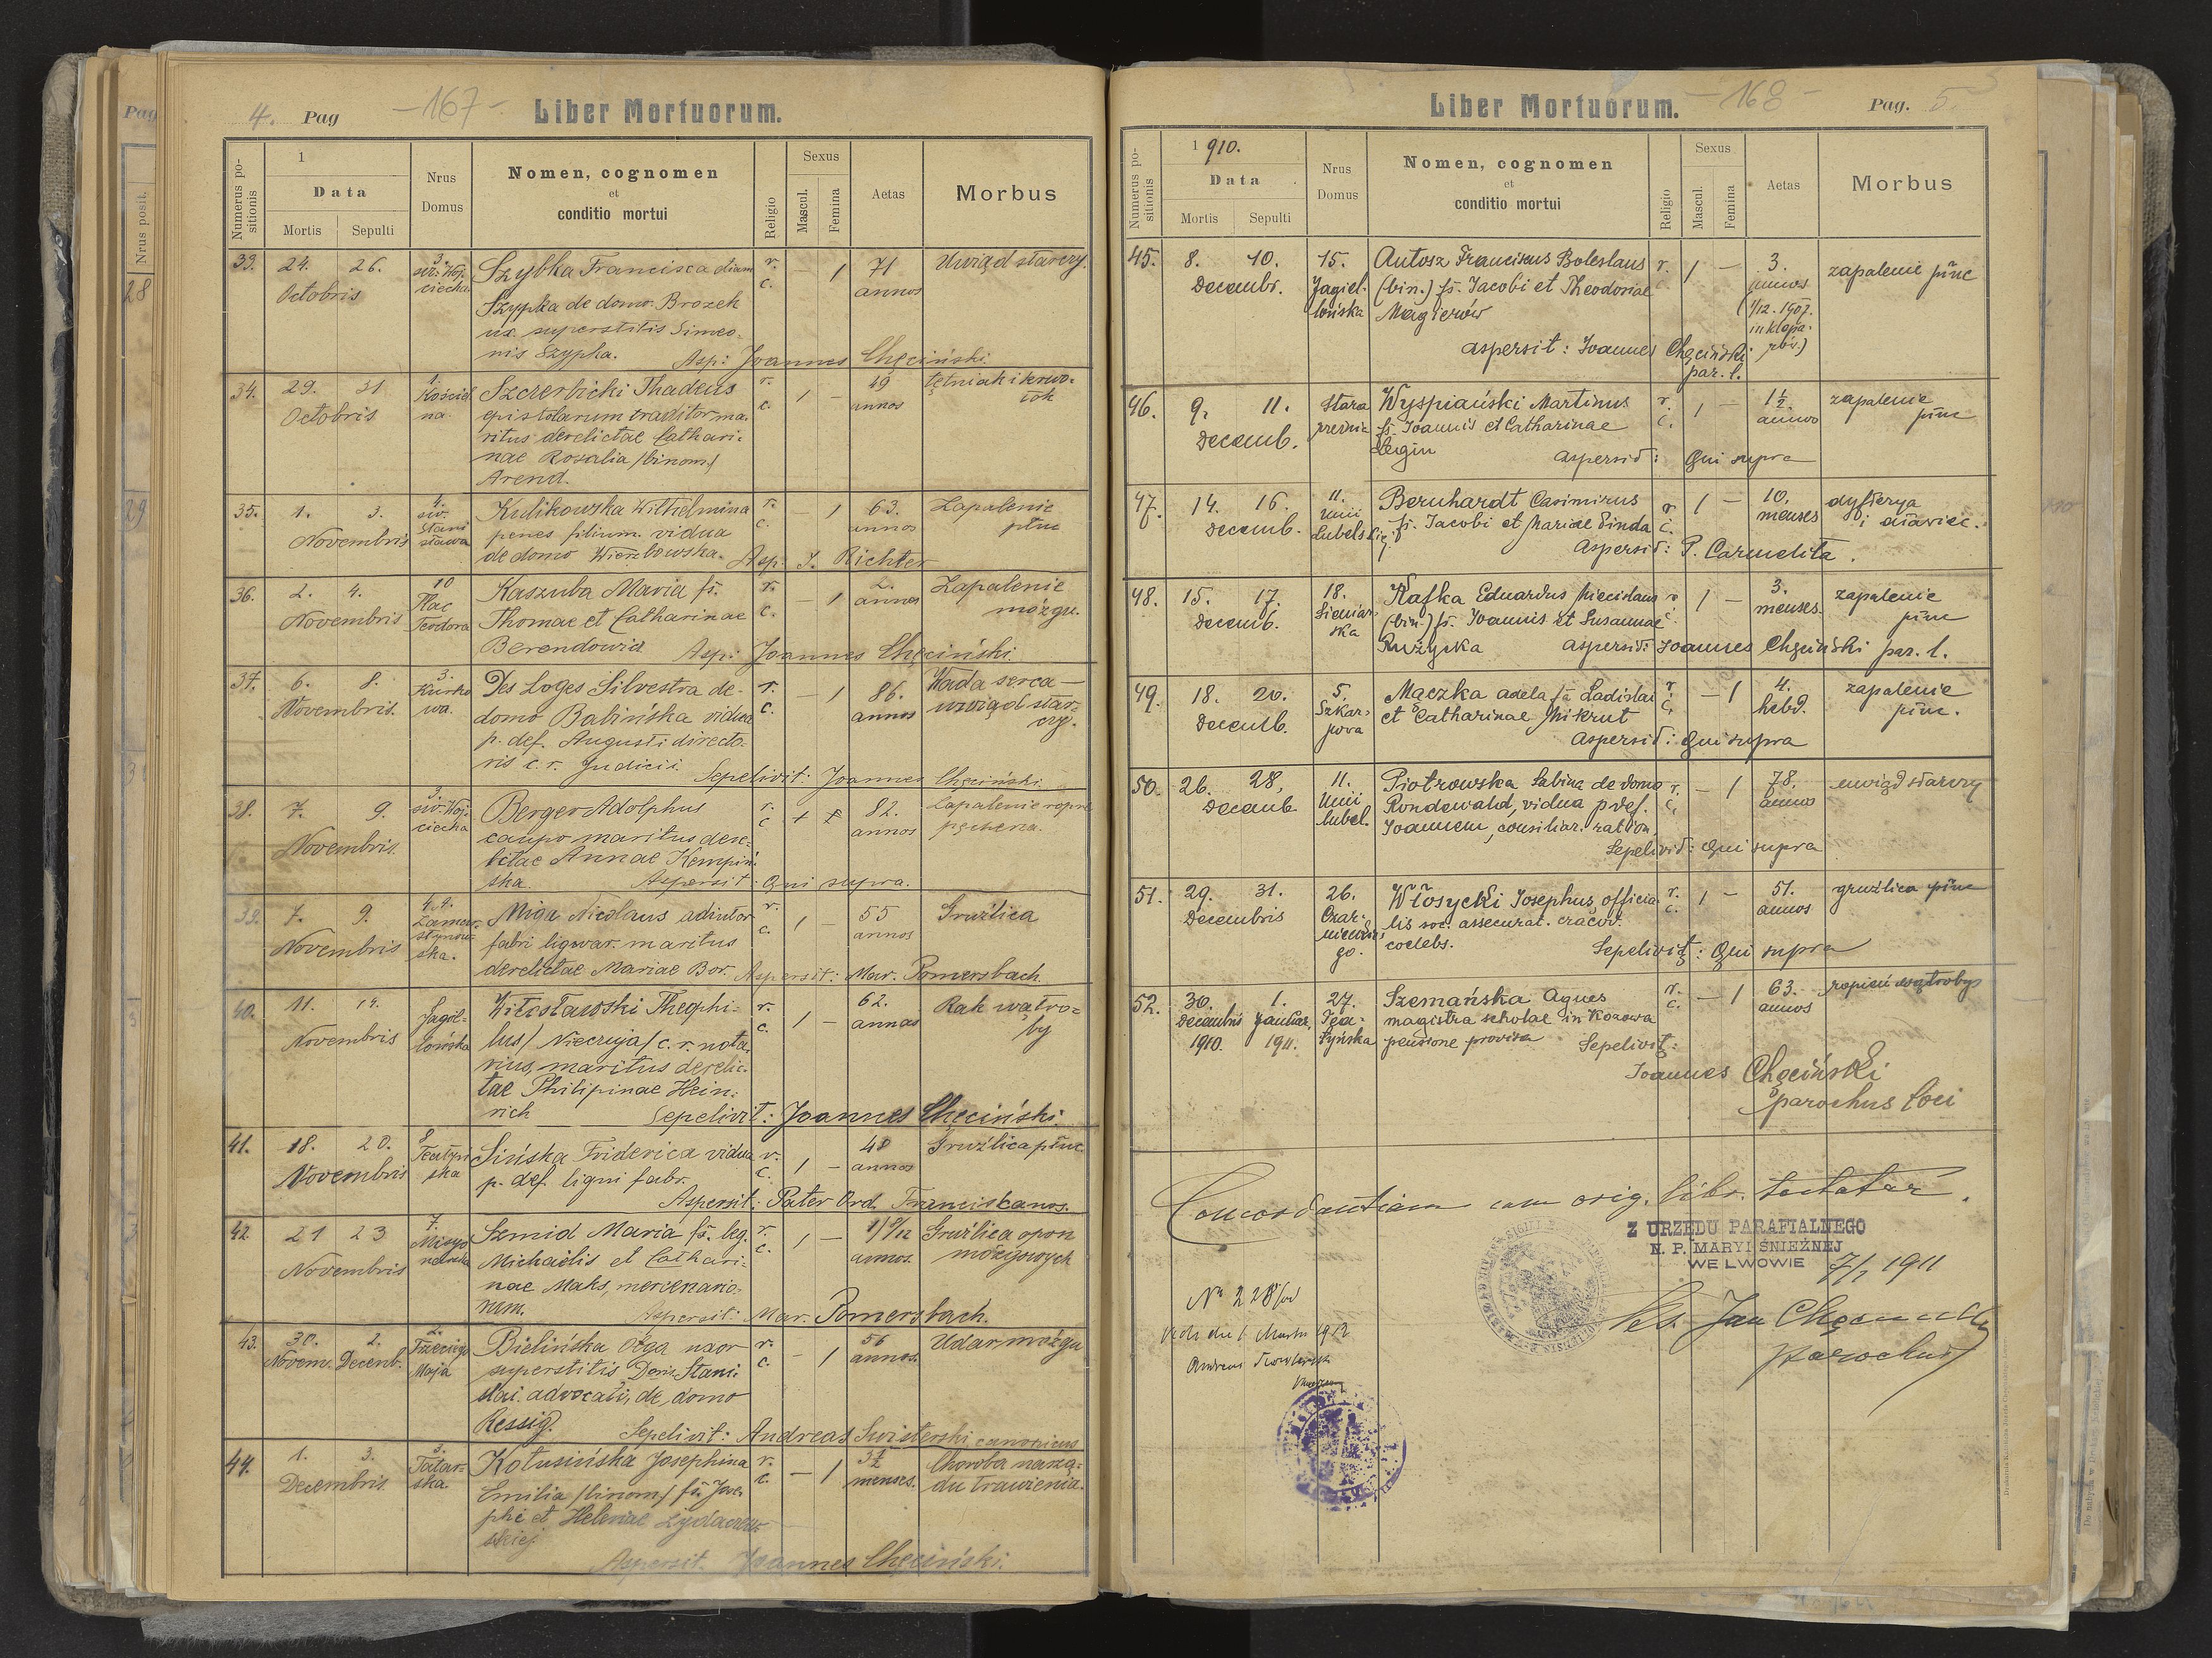 4. Pag
-167-
Liber Mortuorum.
Numerus positionis
1
Data
Mortis
Sepulti
Nrus
Domus
Nomen, cognomen
et
conditio mortui
Religio
Sexus
Mascul.
Femina
Aetas
Morbus
33. 24. 26. 3. Szybka Francisca etiam r. — 1 71 Uwiąd starczy.
Octobris św. Woj- c. annos
ciecha Szypka de domo Brozek
ux. superstitis Simeo-
nis Szypka. Asp: Joannes Chęciński.
34. 29. 31 1. Szczerbicki Thadeus r. 1 — 49 tętniak i krwo-
Octobris Kościel epistolarum traditor ma- c. annos tok
na. ritus derelictae Cathari-
nae Rosalia /binom/
Arend.
35. 1. 3. 4. Kulikowska Wilhelmina r. — 1 63. Zapalenie
Novembris św. penes filium. vidua c. annos płuc
Stani de domo Wierzbowska. Asp. J. Richter
sława
36. 2. 4. 10 Kaszuba Maria fs. r. — 1 2. Zapalenie
Novembris Plac Thomae et Catharinae c. annos mózgu.
Teodora Berendowicz Asp: Joannes Chęciński.
37. 6. 8. 3. Des Loges Silvestra de- r. — 1 86. Wada serca —
Novembris. Kurko domo Babińska vidua c. annos uwiąd star-
wa. p. def. Augusti directo- czy.
ris c. r. Judicii Sepelivit: Joannes Chęciński.
38. 7. 9. 3. Berger Adolphus r. 82.
Novembris. św. Woj- caupo maritus dere- c annos pęcherza.
ciecha lictae Annae Kempiń-
ska. Aspersit: Qui supra.
39. 7. 9. Miga Nicolaus adiutor r. 1 — 55 Gruźlica
Novembris fabri lignar. maritus c. annos
ska. derelictae Mariae Bor. Aspersit: Mar. Pomersbach.
40. 11. Jagiel- Witosławski Theophi- r. 1 — 62. Rak wątro-
Novembris lońska lus / Nieczuja/ c. r. nota- c. annos by
rius, maritus derelic-
tae Philipinae Hein-
rich Sepelivit: Joannes Chęciński.
41. 18. 20. 8 Sińska Friderica vidua r. 1 — Gruźlica płuc.
Novembris ska p. def. ligni fabr. c. annos
Aspersit: Pater Ord. Franciskanos.
42. 21 23 7. Szmid Maria fs. leg. r. 1 — Gruźlica opon
Novembris Misyo Michaëlis et Cathari- c. annos. mózgowych
narska nae Maks, mercenario-
rum. Aspersit: Mar. Pomersbach.
43. 30. 2. 2. Bielińska Olga uxor r. — 1 56 Udar mózgu
Novem. Decemb. Trzeciego superstitis Dom. Stani- c. annos.
Maja slai advocati, de domo
Ressig. Sepelivit: Andreas Switerski canonicus
44. 1. 3. 3. Kotusińska Josephina r. — 1 3½ Choroba narzą-
Decembris Tatar- Emilia /binom/ fs. Jose- c. menses. du trawienia.
ska. phi et Helenae
Aspersit. Joannes Chęciński.
Liber Mortuorum.
-168-
Pag. 5.
Numerus positionis
1910.
Data
Mortis
Sepulti
Nrus
Domus
Nomen, cognomen
et
conditio mortui
Religio
Sexus
Mascul.
Femina
Aetas
Morbus
45. 8. 10. 15. Antosz Franciscus Boleslaus r. 1 — 3. zapalenie płuc
Decembr. Jagiel- (bin.) fs. Jacobi et Theodoriae c. annos
lońska Magierów (1/12. 1907.
in Klepa-
aspersit: Joannes Chęciński rów)
par. l.
46. 9. 11. Stara Wyspiański Martinus r. 1 — 1½ zapalenie
Decemb. fs. Joannis et Catharinae c. annos płuc
Legin aspersit: Qui supra
47. 14. 16. 11. Bernhardt Casimirus r 1 — 10. dyfterya
Decemb. Unii fs. Jacobi et Mariae Dinda c. menses i dławiec.
Lubelskiej aspersit: P. Carmelita.
48. 15. 17. 18. Kafka Eduardus Miecislaus r 1 — 3. zapalenie
Decemb. Sieniaw- (bin.) fs. Joannis et Susannae c. menses. płuc
ska Rużycka aspersit: Joannes Chęciński par. l.
49. 18. 20. 5. Mączka Adela fa Ladislai r. — 1 4. zapalenie
Decemb. Szkar- et Catharinae Mikrut c. hebd. płuc.
powa aspersit: Qui supra
50. 26. 28. 11. Piotrowska Sabina de domo r. — 1 78. uwiąd starczy
Decemb. Unii Rondewald, vidua p. def. c. annos
Lubel. Joannem, consiliar. ration.
Sepelivit: Qui supra
51. 29. 31. 26. Włosycki Josephus officia- r. 1 — 51. gruźlica płuc
Decembris Czar- lis soc. assecurat. cracov. c. annos
nieckie- coelebs.
go. Sepelivit: Qui supra
52. 30. 1. 27. Szemańska Agnes r. — 1 63. ropień wątroby
Decembris Januar. magistra scholae in Kozowa c. annos
1910. 1911. pensione provisa Sepelivit:
Joannes Chęciński
parochus loci
Concordantiam cum orig. libr. testatur.
Z URZĘDU PARAFIALNEGO
N. P. MARYI ŚNIEŻNEJ
WE LWOWIE 7/1 1911
Ks. Jan Chęciński
Parochus
No 228/
1912